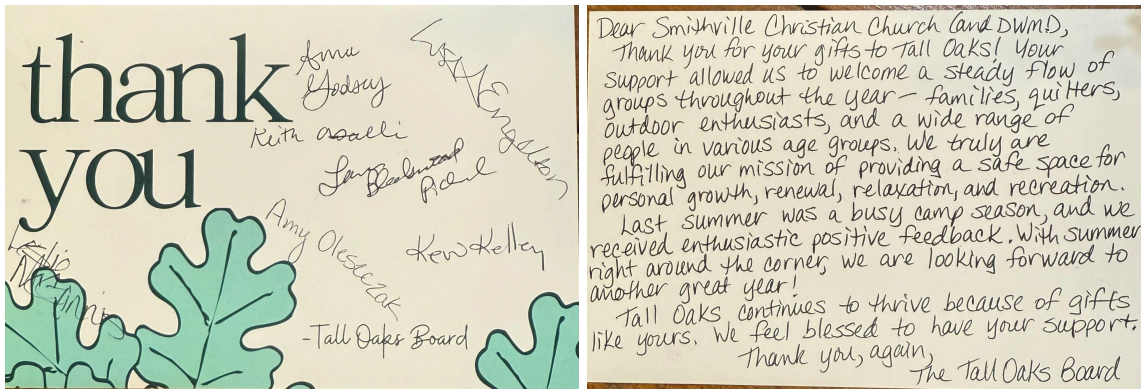 thank
you
Anna
Godsey
Lisa Engelken
Keith
Amy Oleszczak
Kew Kelley
Leslie
-Tall Oaks Board
Dear Smithville Christian Church (and DWM),
Thank you for your gifts to Tall Oaks! Your
support allowed us to welcome a steady flow of
groups throughout the year - families, quilters,
outdoor enthusiasts, and a wide range of
people in various age groups. We truly are
fulfilling our mission of providing a safe space for
personal growth, renewal, relaxation, and recreation.
Last summer was a busy camp season, and we
received enthusiastic positive feedback. With summer
right around the corner, we are looking forward to
another great year!
Tall Oaks continues to thrive because of gifts
like yours. We feel blessed to have your support.
Thank you, again,
The Tall Oaks Board